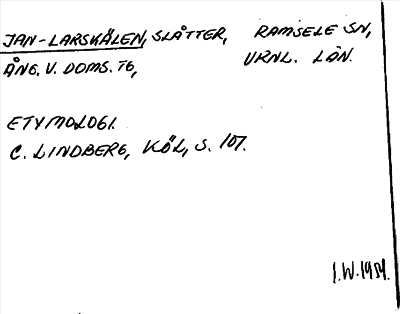 JAN-LARSKÄLEN, SLÅTTER, RAMSELE SN,
ÅNG. V. DOMS. TG, VRNL. LÄN.
ETYMOLOGI.
C. LINDBERG, KÖL, S. 107.
I.W. 1984.